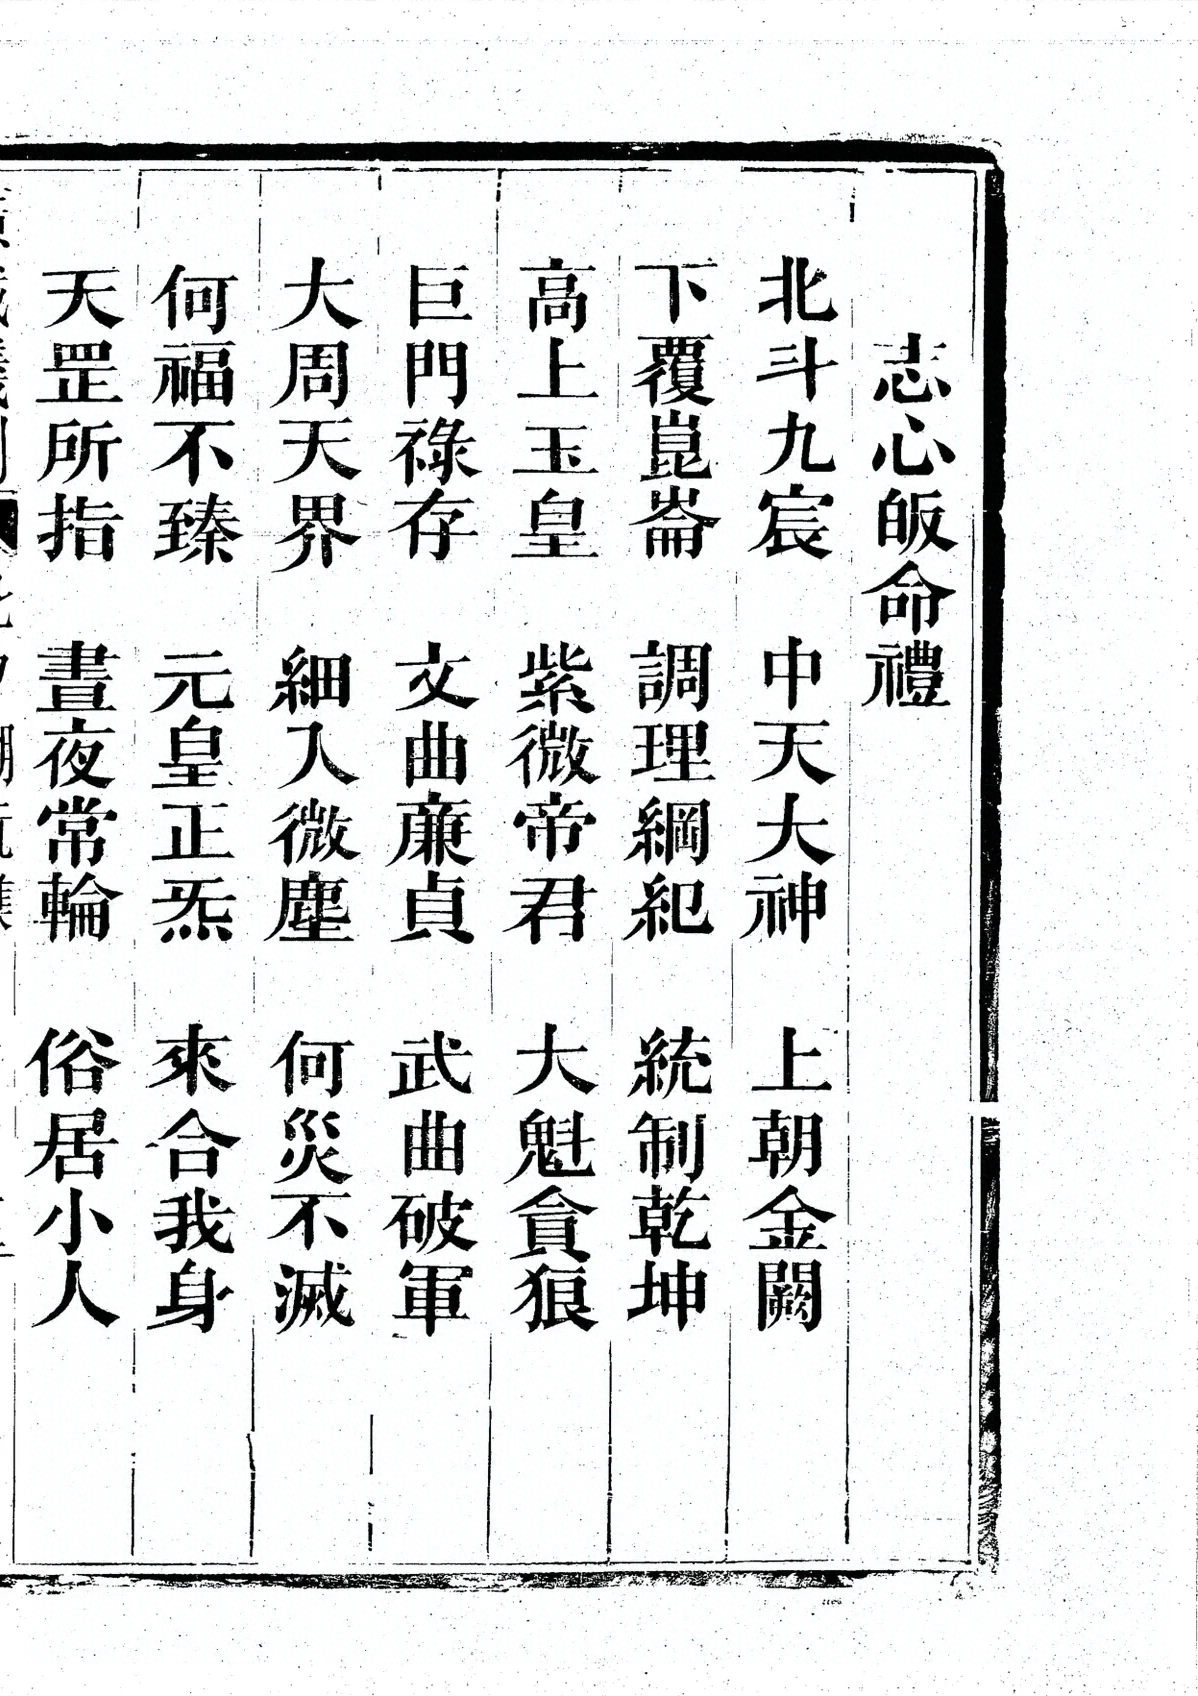 志心皈命禮
北斗九宸 中天大神 上朝金闕
下覆崑崙 調理綱紀 統制乾坤
高上玉皇 紫微帝君 大魁貪狼
巨門祿存 文曲廉貞 武曲破軍
大周天界 細入微塵 何災不滅
何福不臻 元皇正炁 來合我身
天罡所指 晝夜常輪 俗居小人